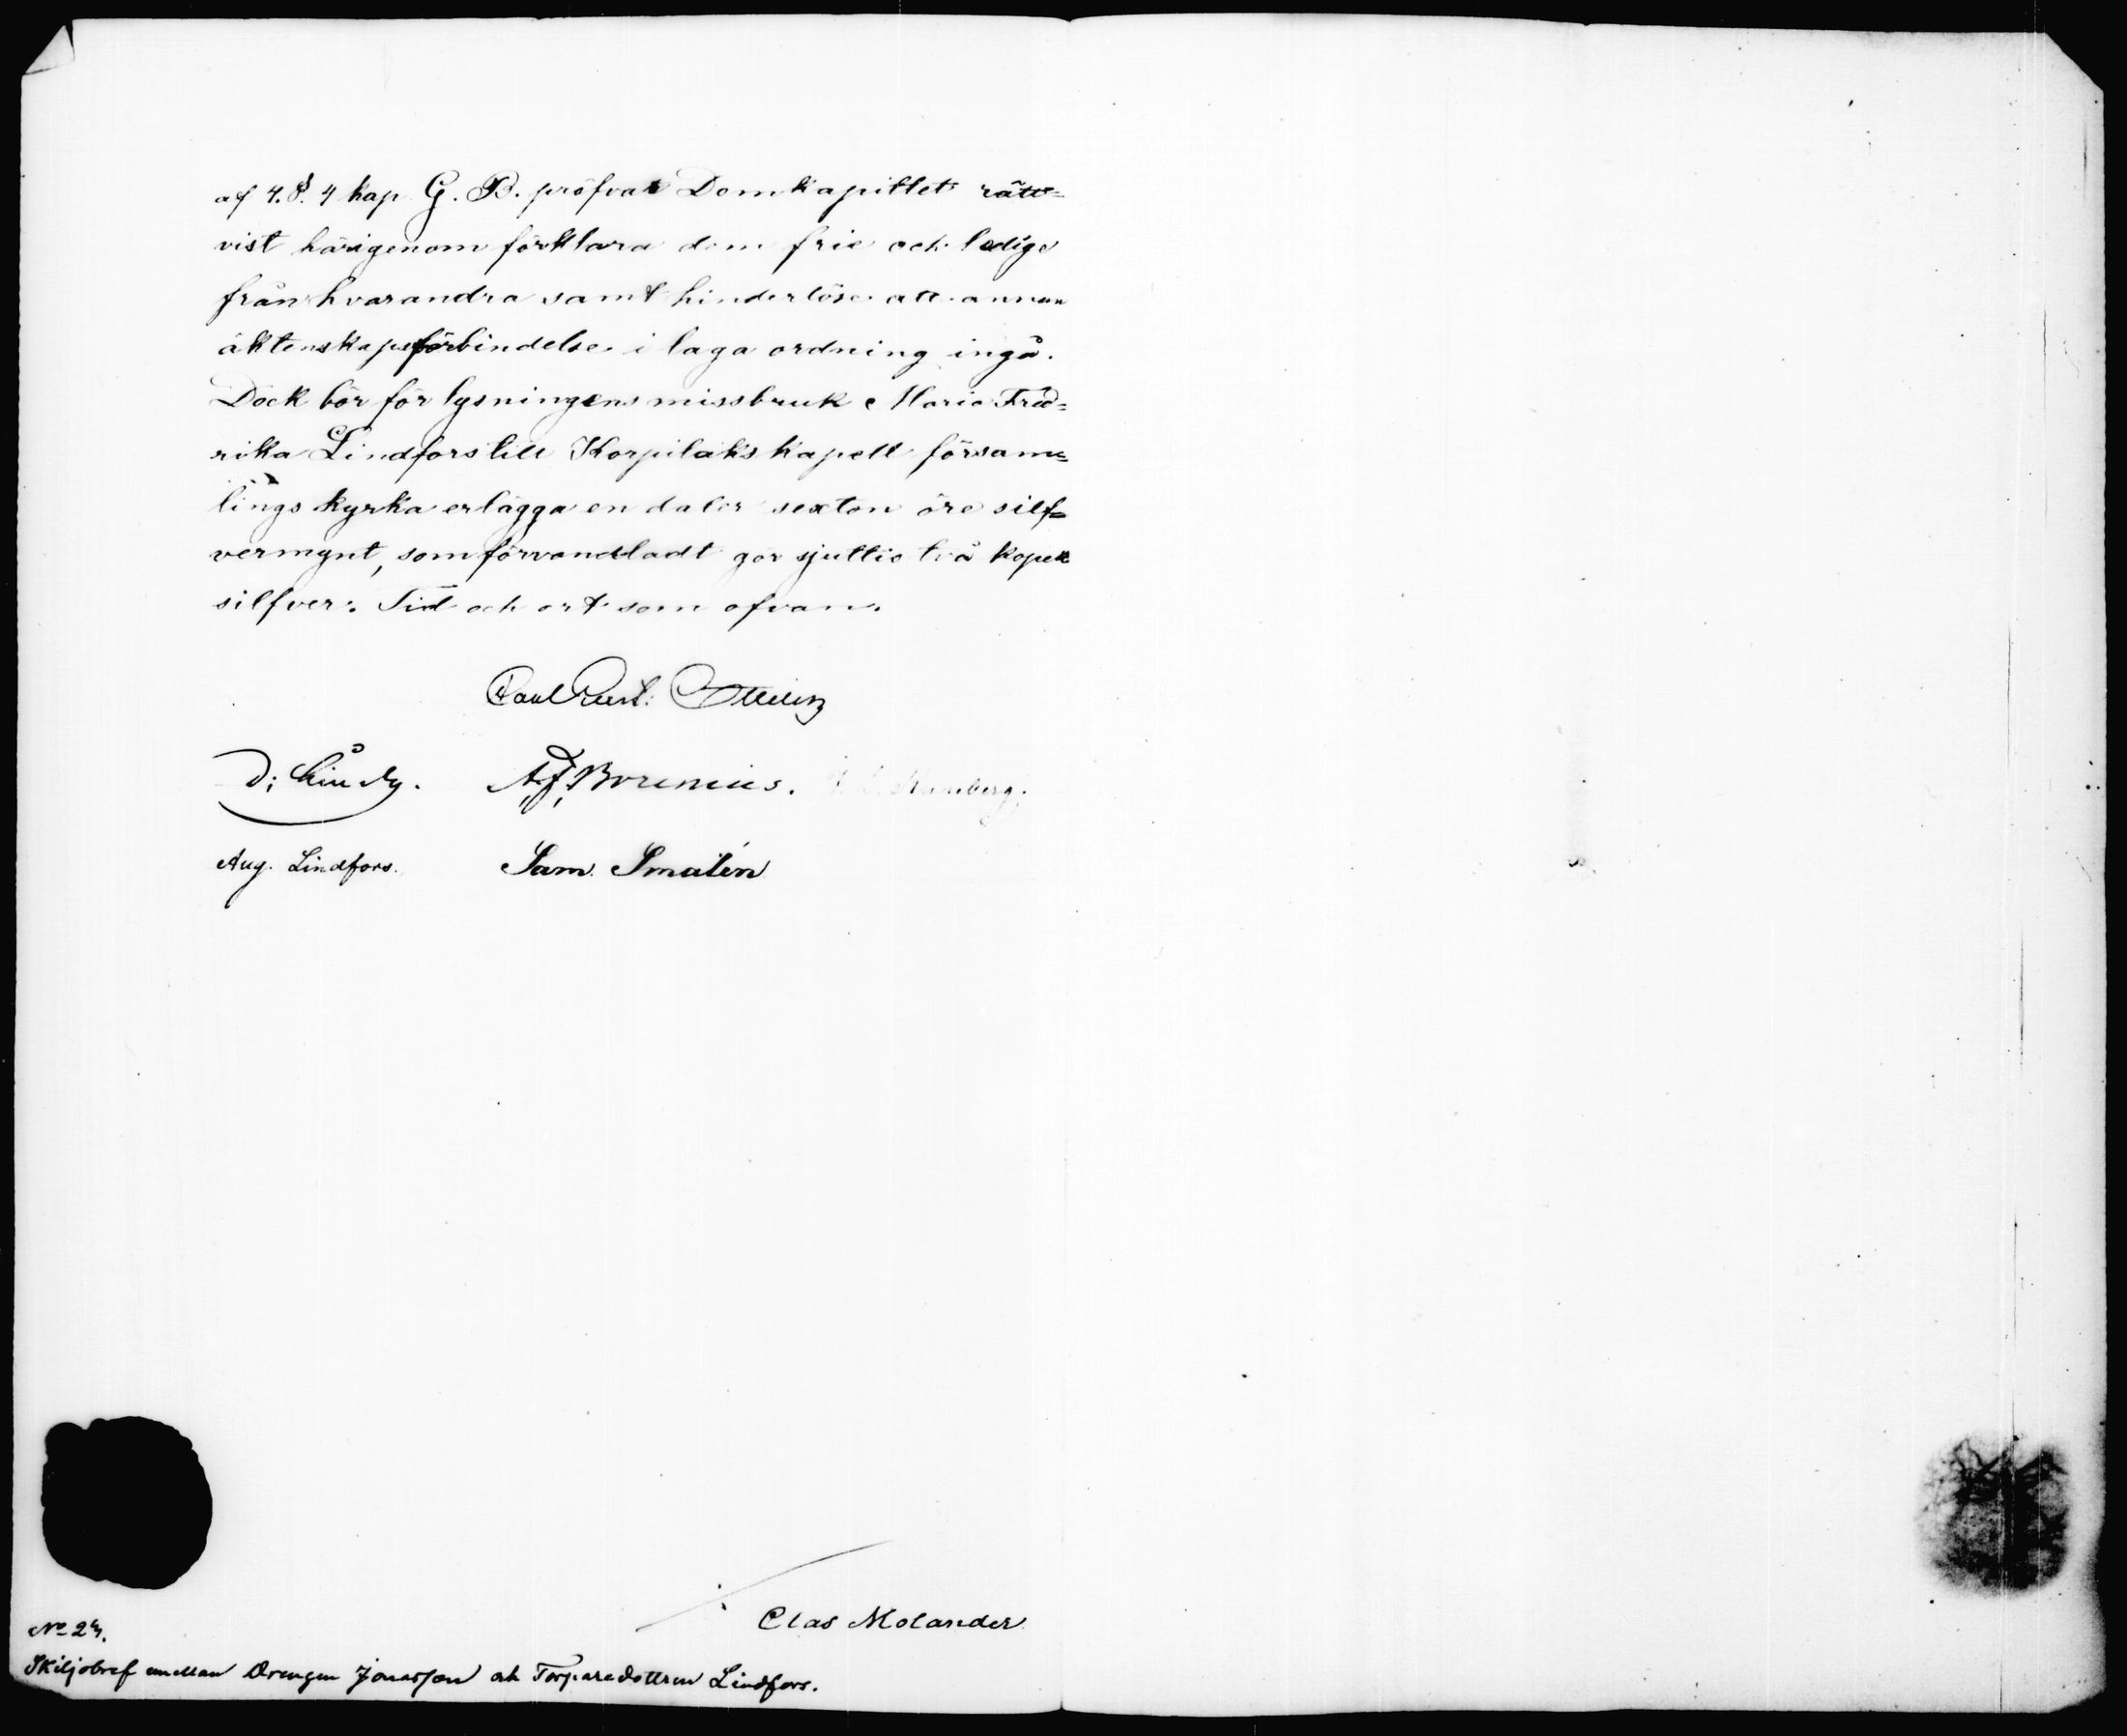 af 4. §. 4 kap G. B. pröfvar Domkapitlet rätt=
vist härigenom förklara dem frie och ledige
från hvarandra samt hinderlöse att annan
äktenskapsförbindelse i laga ordning ingå.
Dock bör för lysningens missbruk Maria Fred=
rika Lindfors till Korpilaks kapell försam=
lings kyrka erlägga en daler sexton öre silf=
vermynt, som förvandladt gör sjuttio två kopek
silfver. Tid och ort som ofvan.
A. F. Borenius.
Aug. Lindfors. Sam. Smalén
Clas Molander
No 24.
Skiljobref emellan Drengen Jonasson och Torparedottren Lindfors.